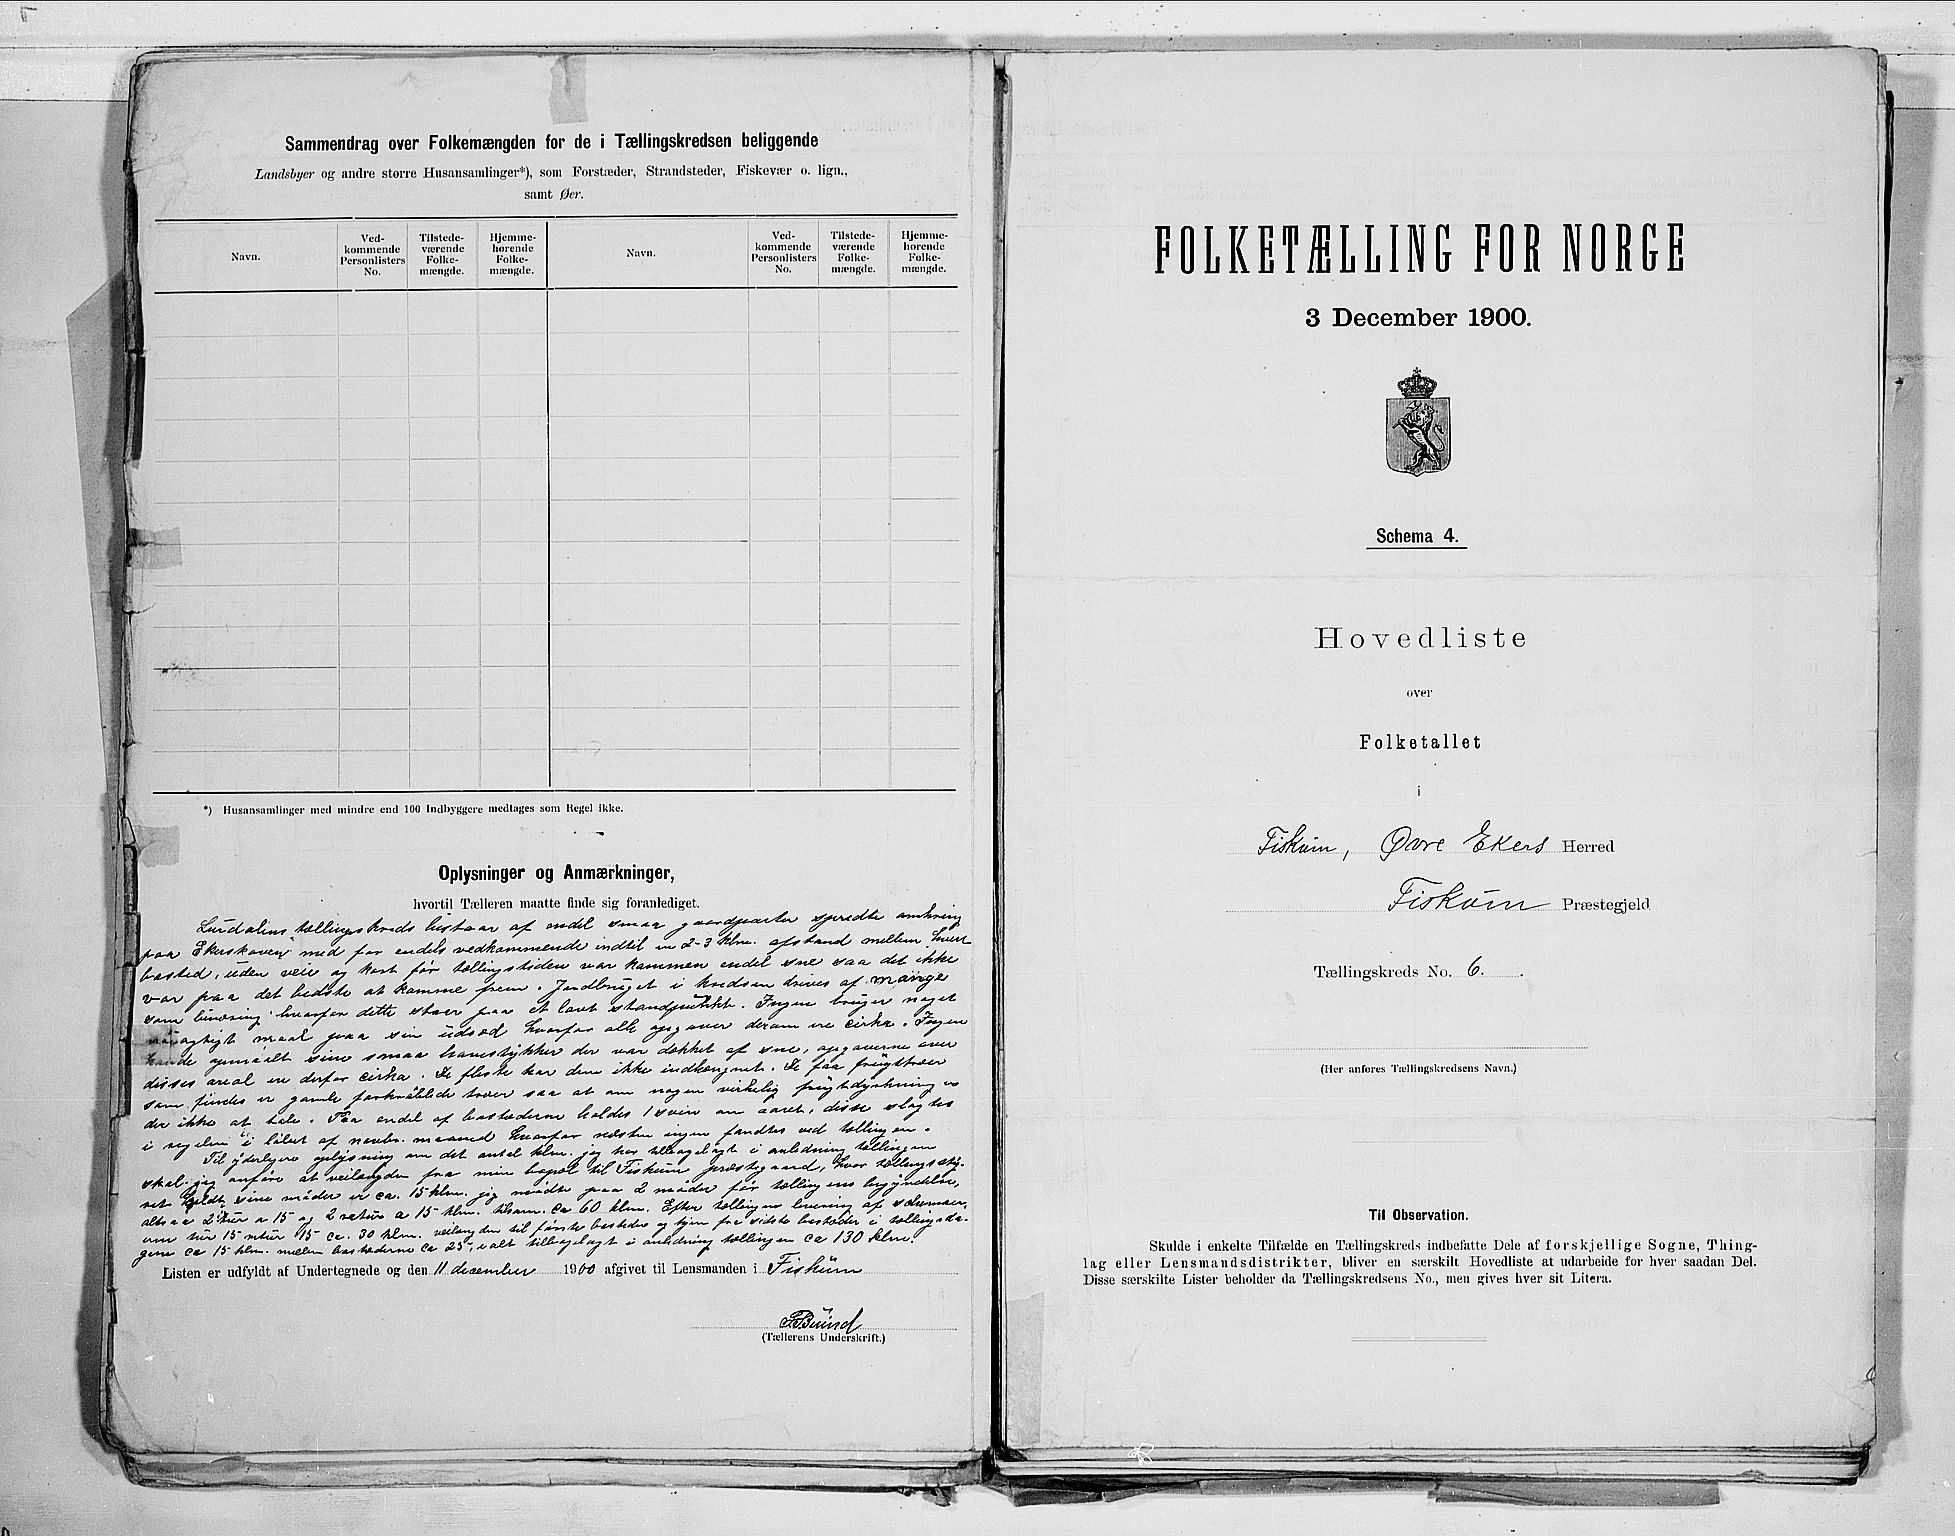 Sammendrag over Folkemængden for de i Tællingskredsen beliggende
Landsbyer og andre større Husansamlinger*), som Forstæder, Strandsteder, Fiskevær o. lign.,
samt Øer.
Navn.
Ved-
kommende
Personlisters
No.
Tilstede-
værende
Folke-
mængde.
Hjemme-
hørende
Folke-
mængde.
Navn.
Ved-
kommende
Personlisters
No.
Tilstede-
værende
Folke-
mængde.
Hjemme-
hørende
Folke-
mængde.
*) Husansamlinger med mindre end 100 Indbyggere medtages som Regel ikke.
Oplysninger og Anmærkninger,
hvortil Tælleren maatte finde sig foranlediget.
Lurdalens tællingskreds bestaar af endel smaa gaardparter spredte omkring
paa Ekerskoven med for endels vedkommende indtil en 2-3 klm. afstand mellem hvert
bosted, uden veie og kort før tællingstiden var kommen endel sne saa det ikke
var paa det bedste at komme frem. Jordbruget i kredsen drives af mange
som binæring hvorfor dette staar paa et lavt standpunkt. Ingen bruger noget
nøiagtigt maal paa sin udsæd hvorfor alle opgaver derom ere cirka. Ingen
havde opmaalt sine smaa havestykker der var dækket af sne, opgaverne over
disses areal er derfor cirka. De fleste har dem ikke indhægnet. De faa frugttræer
som findes er gamle forkrøblede træer saa at om nogen virkelig frugtdyrkning er
der ikke at tale. Paa endel af bostederne holdes 1 svin om aaret, disse slagtes
i regelen i løbet af novbr. maaned hvorfor næsten ingen fandtes ved tællingen.
Til yderligere oplysning om det antal klm. jeg har tilbagelagt i anledning tællingen
skal jeg anføre at veilængden fra min bopæl til Fiskum præstegaard, hvor tællingssty-
ret holdt sine møder er ca. 15 klm. jeg mødte paa 2 møder før tællingens begyndelse,
altsaa 2 tur a 15 og 2 retur a 15 klm. tilsam. ca 60 klm. Efter tællingen levering af skemaer.
een tur 15 retur 15 ca. 30 klm. veilængden til første bostedet og hjem fra sidste bostedet i tællingsda-
gene ca 15 klm. mellem bostederne ca 25, ialt tilbagelagt i anledning tællingen ca 130 klm.
Listen er udfyldt af Undertegnede og den 11 december 1900 afgivet til Lensmanden i Fiskum
Bund
(Tællerens Underskrift.)
FOLKETÆLLING FOR NORGE
3 December 1900.
Schema 4.
Hovedliste
over
Folketallet
i
Fiskum, Øvre Ekers Herred
Fiskum Præstegjeld
Tællingskreds No. 6.
(Her anføres Tællingskredsens Navn.)
Til Observation.
Skulde i enkelte Tilfælde en Tællingskreds indbefatte Dele af forskjellige Sogne, Thing-
lag eller Lensmandsdistrikter, bliver en særskilt Hovedliste at udarbeide for hver saadan Del.
Disse særskilte Lister beholder da Tællingskredsens No., men gives hver sit Litera.